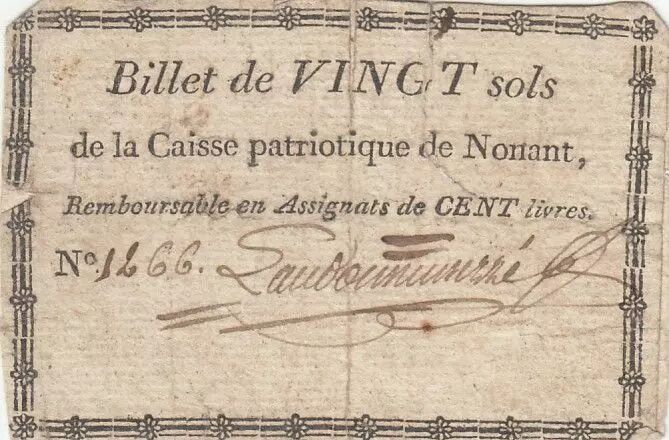 Billet de VINGT sols
de la Caisse patriotique de Nonant,
Remboursable en Assignats de CENT livres.
No. 1266.